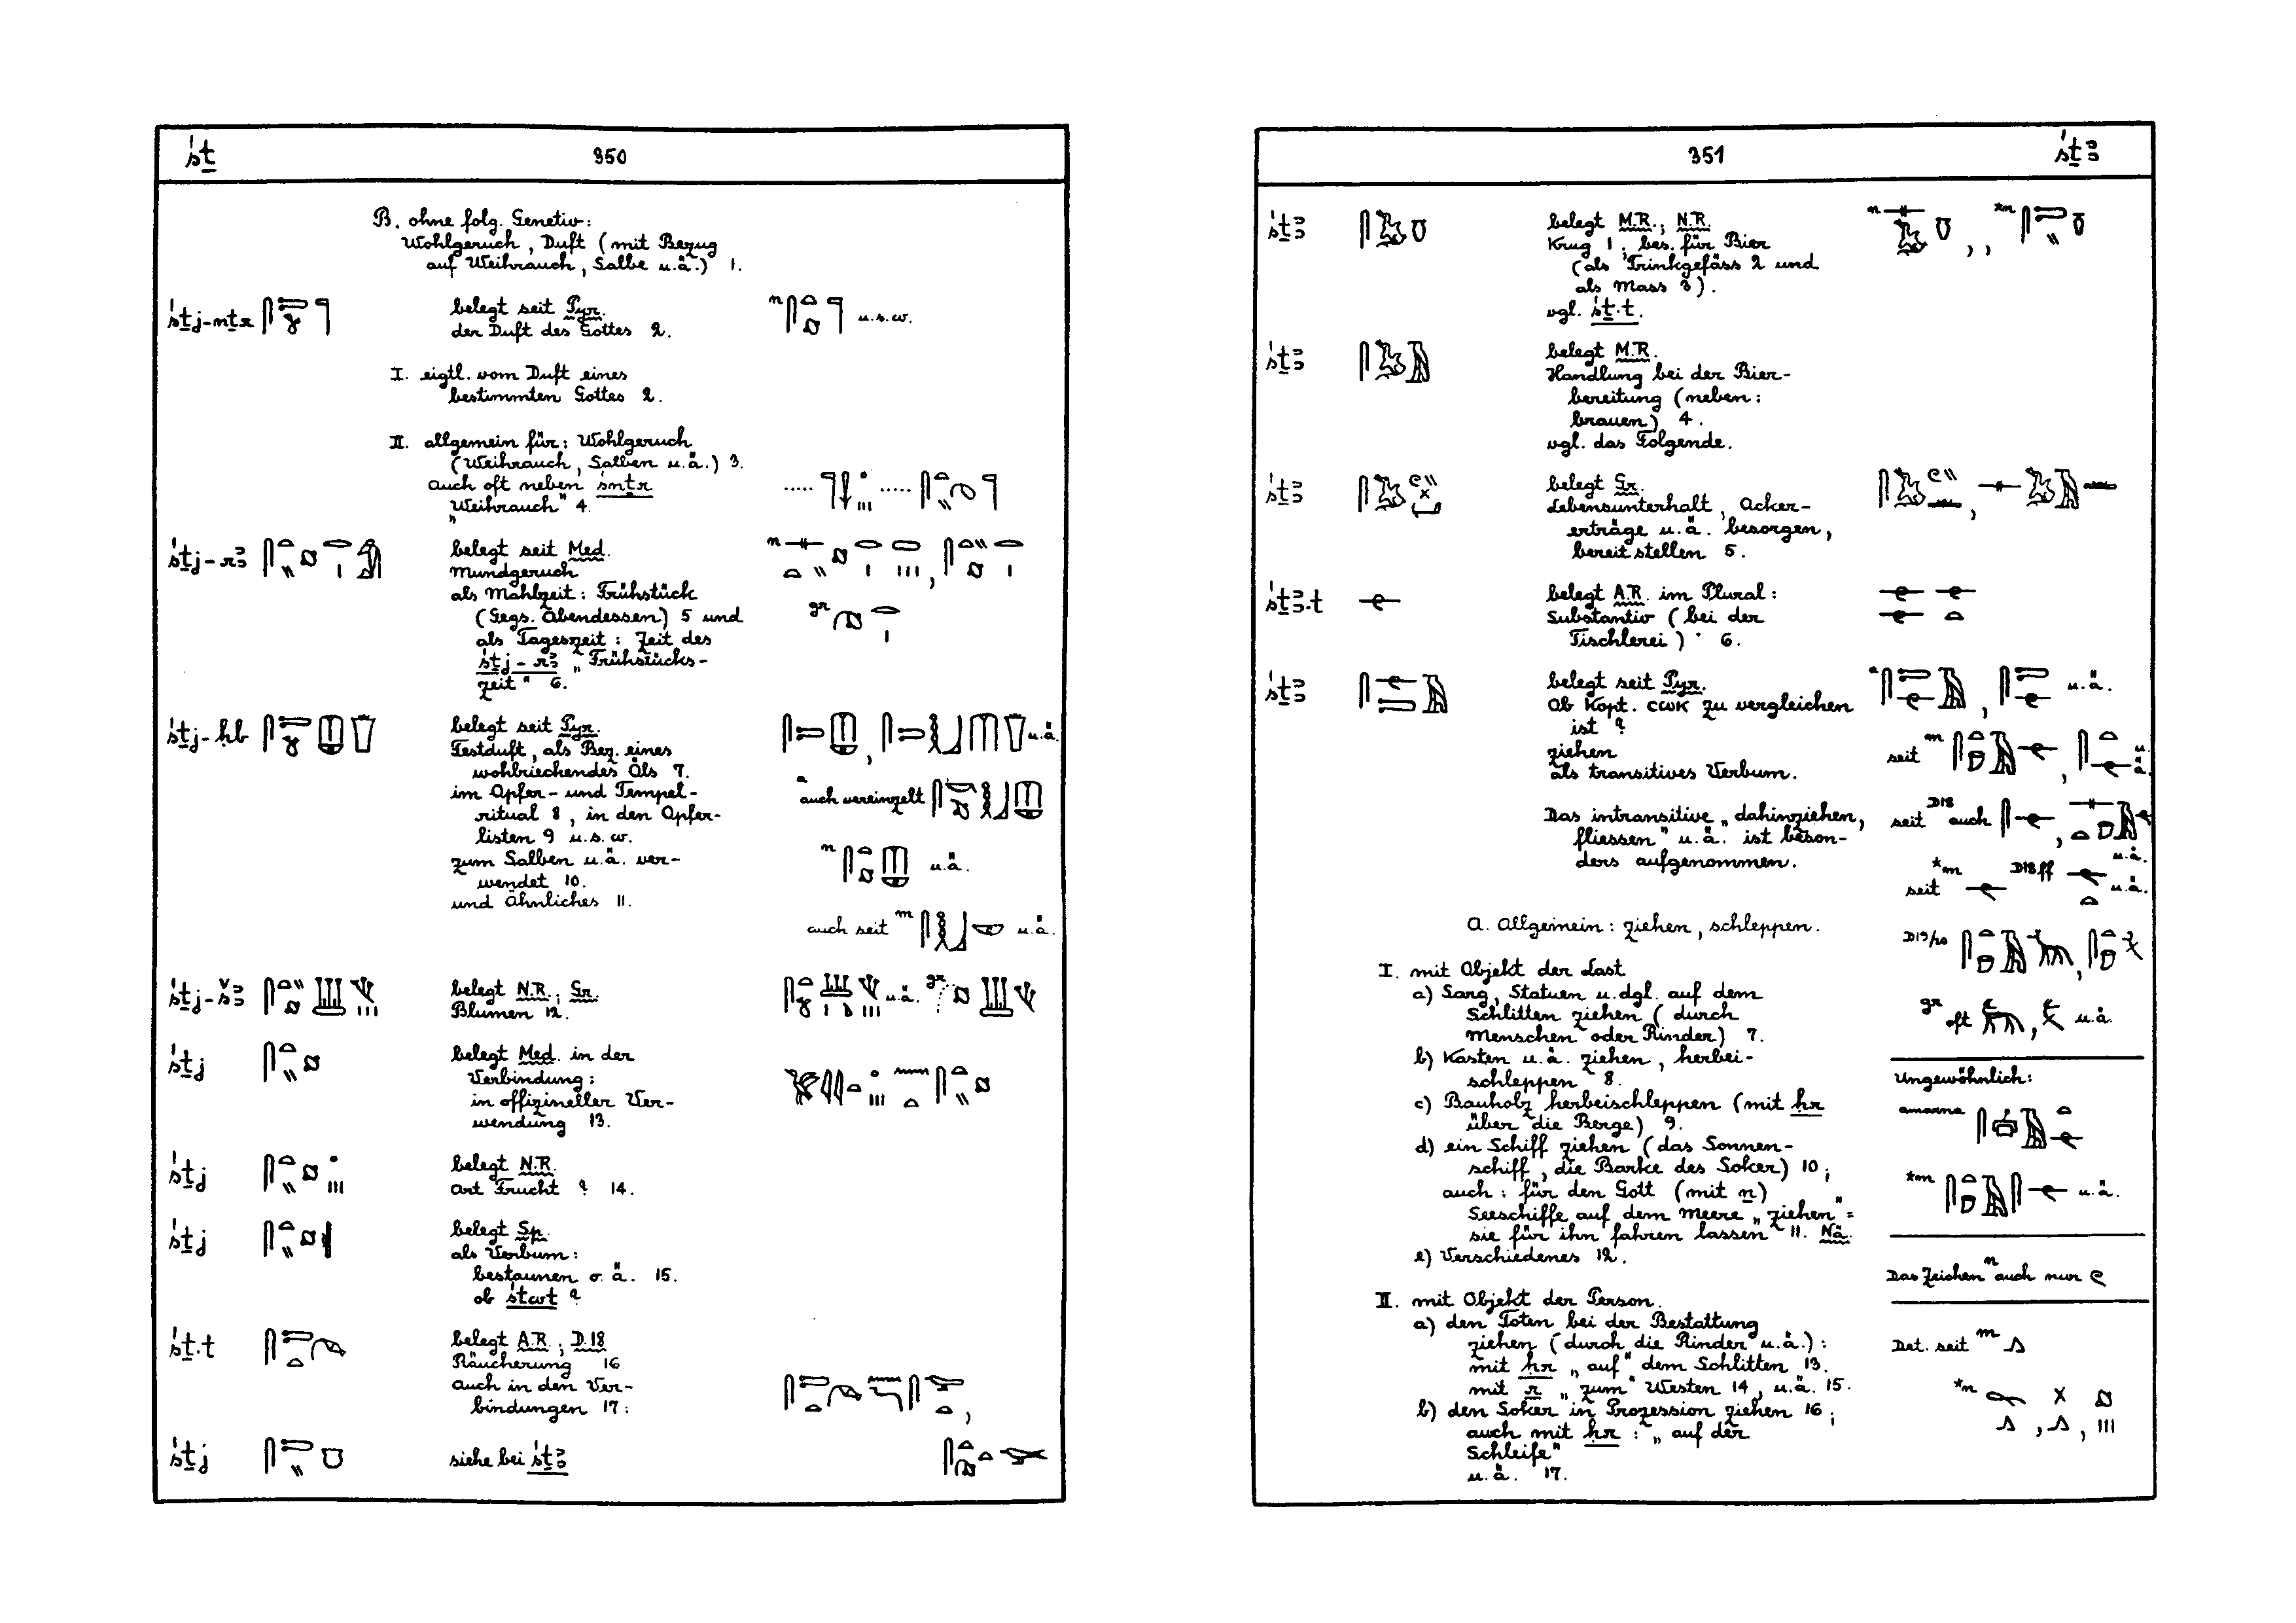 śṯ
350
B. ohne folg. Genetiv:
Wohlgeruch, Duft (mit Bezug
auf Weihrauch, Salbe u.ä.) 1.
śṯj-nṯr
belegt seit Pyr.
der Duft des Gottes 2.
n
u.s.w.
I. eigtl. vom Duft eines
bestimmten Gottes 2.
II. allgemein für: Wohlgeruch
(Weihrauch, Salben u.ä.) 3.
auch oft neben śnṯr
„Weihrauch" 4.
śṯj-rꜣ
belegt seit Med.
Mundgeruch
als Mahlzeit: Frühstück
(Gegs. Abendessen) 5 und
als Tageszeit: Zeit des
śṯj-rꜣ „Frühstücks-
zeit" 6.
n
gr
śṯj-ḥb
belegt seit Pyr.
Festduft, als Bez. eines
wohlriechendes Öls 7.
im Opfer- und Tempel-
ritual 8, in den Opfer-
listen 9 u.s.w.
zum Salben u.ä. ver-
wendet 10.
und Ähnliches 11.
u.ä.
a
auch vereinzelt
n
u.ä.
auch seit m
u.ä.
śṯj-šꜣ
belegt N.R.; Gr.
Blumen 12.
u.ä. gr
śṯj
belegt Med. in der
Verbindung:
in offizineller Ver-
wendung 13.
śṯj
belegt N.R.
Art Frucht ? 14.
śṯj
belegt Sp.
als Verbum:
bestaunen o.ä. 15.
ob śtwt ?
śṯ.t
belegt A.R.; D.18
Räucherung 16.
auch in den Ver-
bindungen 17:
śṯj
siehe bei śṯꜣ
351
śṯꜣ
śṯꜣ
belegt M.R.; N.R.
Krug 1; bes. für Bier
(als Trinkgefäss 2 und
als Mass 3).
vgl. śṯ.t.
n
*n
śṯꜣ
belegt M.R.
Handlung bei der Bier-
bereitung (neben:
brauen) 4.
vgl. das Folgende.
śṯꜣ
belegt Gr.
Lebensunterhalt, Acker-
erträge u.ä. besorgen,
bereit stellen 5.
śṯꜣ.t
belegt A.R. im Plural:
Substantiv (bei der
Tischlerei) 6.
śṯꜣ
belegt seit Pyr.
Ob Kopt. ⲥⲱⲕ zu vergleichen
ist ?
ziehen
als transitives Verbum.
Das intransitive „dahinziehen,
fliessen" u.ä. ist beson-
ders aufgenommen.
a
u.ä.
seit m
u.ä.
seit D18 auch
u.ä.
seit *m
D18ff
u.ä.
D19/20
gr oft
u.ä.
Ungewöhnlich:
amarna
*m
u.ä.
Das Zeichen n auch nur
Det. seit m
*n
A. Allgemein: ziehen, schleppen.
I. mit Objekt der Last
a) Sarg, Statuen u.dgl. auf dem
Schlitten ziehen (durch
Menschen oder Rinder) 7.
b) Kasten u.ä. ziehen, herbei-
schleppen 8.
c) Bauholz herbeischleppen (mit ḥr
über die Berge) 9.
d) ein Schiff ziehen (das Sonnen-
schiff, die Barke des Soker) 10;
auch: für den Gott (mit n)
Seeschiffe auf dem Meere „ziehen" =
sie für ihn fahren lassen 11. Nä.
e) Verschiedenes 12.
II. mit Objekt der Person.
a) den Toten bei der Bestattung
ziehen (durch die Rinder u.ä.):
mit ḥr „auf" dem Schlitten 13.
mit r „zum" Westen 14, u.ä. 15.
b) den Soker in Prozession ziehen 16;
auch mit ḥr: „auf der
Schleife"
u.ä. 17.